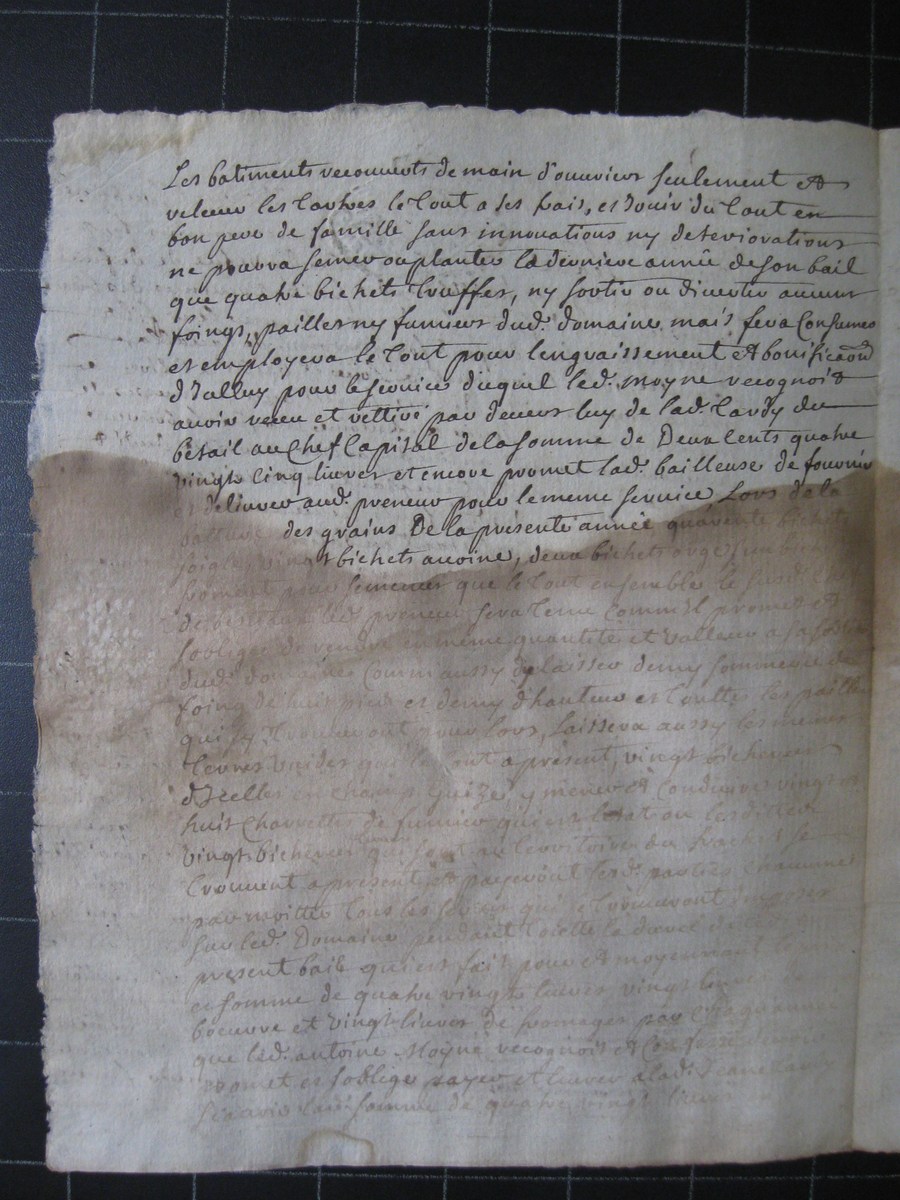 Les batiments recouverts de main d'ouvrier seulement et
relever les tartres le tout a ses frais, et Jouir du tout en
bon pere de famille sans innouations ny deteriorations
ne pourra semer ou planter la derniere année de son bail
que quatre bichets truffes, ny sortir ou divertir aucuns
foings, pailles ny fumiers dud. domaine mais fera Consumer
et employera le tout pour lengraissement et bonificaon
d'Jcelluy pour le service duquel led. moyne recognoit
avoir receu et rettiré par devers luy de lad. tardy du
betail au Chef Capital de la somme de Deux Cents quatre
vingt Cinq livres et encore promet lad. bailleuse de fournir
et delivrer aud. preneur pour le meme service Lors de la
batture des grains De la presente année quarente bichets
soigle, vingt bichets avoine, deux bichets orge, un bichet
froment pour semence que le tout ensemble le sus
de bestiaux led. preneur sera tenu Comm'il promet et
s'oblige de rendre en meme quantité et valleur a sa sortie
dud. domaine Comm'aussy de laisser demy
foing de huit pieds et demy d'hauteur et touttes les pailles
qui s'y trouveront pour lors, Laissera aussy les memes
terres vuides que le sont a present, vingt bicherees
d'Jcelles en champ Guize, y mener et Conduire vingt et
huit Charrettes de fumier qui est
vingt bicherees qui sont au territoire du se
trouvent a present, et payeront led. parties
par moitie tous les qui se trouveront imposes
sur led. Domaine pendant toutte la durée
present bail qui est fait pour et moyennant
et somme de quatre vingt livres vingt livres de
beurre et vingt livres de fromages par Chaque année
que led. antoine Moyne recognoit et
promet et s'oblige payer et livrer a lad. Jeane tardy
Scavoir lad. somme de quatre vingt livres